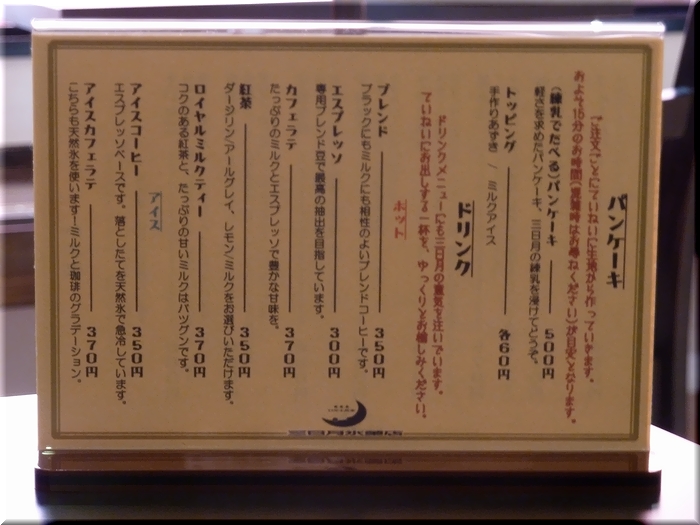 パンケーキ
ご注文ごとにていねいに生地から作っていきます。
およそ15分のお時間(混雑時はお尋ねください)が目安となります。
(練乳でたべる)パンケーキ 500円
軽さを求めたパンケーキ、三日月の練乳を浸けてどうぞ。
トッピング 各60円
手作りあずき / ミルクアイス
ドリンク
ドリンクメニューにも三日月の意気を注いでいます。
ていねいにお出しする一杯を、ゆっくりとお楽しみください。
ホット
ブレンド 350円
ブラックにもミルクにも相性のよいブレンドコーヒーです。
エスプレッソ 300円
専用ブレンド豆で最高の抽出を目指しています。
カフェラテ 370円
たっぷりのミルクとエスプレッソで豊かな甘味を。
紅茶 350円
ダージリン/アールグレイ、レモン/ミルクをお選びいただけます。
ロイヤルミルクティー 370円
コクのある紅茶と、たっぷりの甘いミルクはバツグンです。
アイス
アイスコーヒー 350円
エスプレッソベースです。落としたてを天然氷で急冷しています。
アイスカフェラテ 370円
こちらも天然氷を使います!ミルクと珈琲のグラデーション。
三日月氷菓店